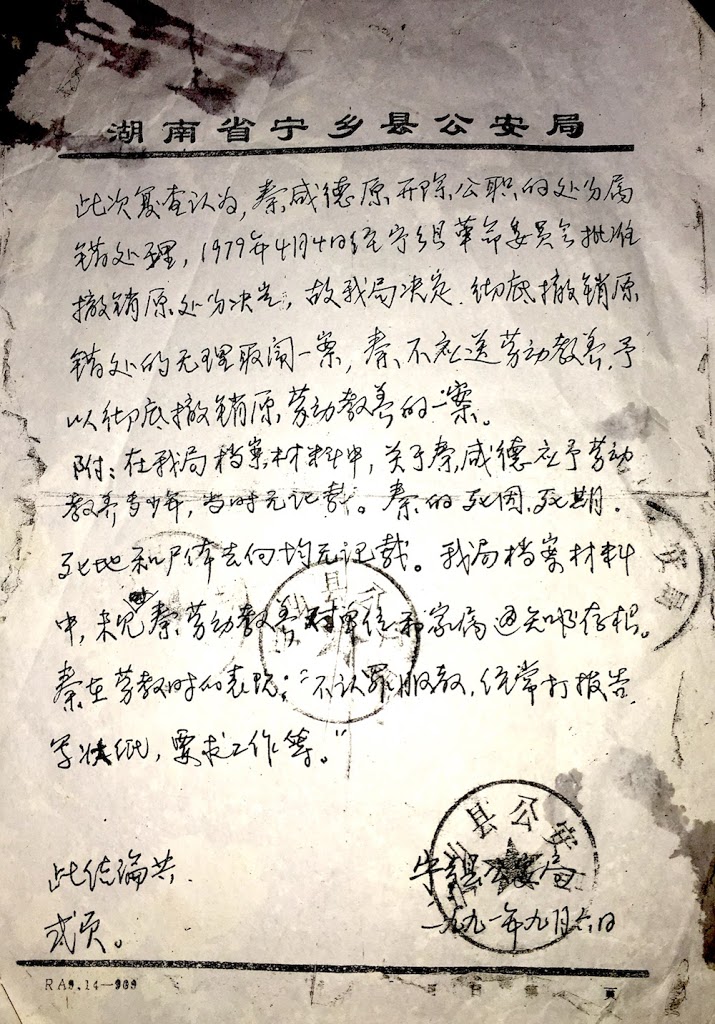 湖南省宁乡县公安局
此次复查认为，秦咸德原开除公职的处分属
错处理，1979年4月4日经宁乡县革命委员会批准
撤销原处分决定，故我局决定彻底撤销原
错处的无理取闹一案，秦不应送劳动教养，予
以彻底撤销原劳动教养的一案。
附：在我局档案材料中，关于秦咸德应予劳动
教养多少年，当时无记载。秦的死因、死期、
死地和尸体去向均无记载。我局档案材料
中，未见秦劳动教养对单位和家属通知书存根。
秦在劳教时的表现：“不认罪服教，经常打报告
写状纸，要求工作等。”
此结论共
贰页。
宁乡县公安局
一九九一年九月六日
县公安
RA9.14—989
页